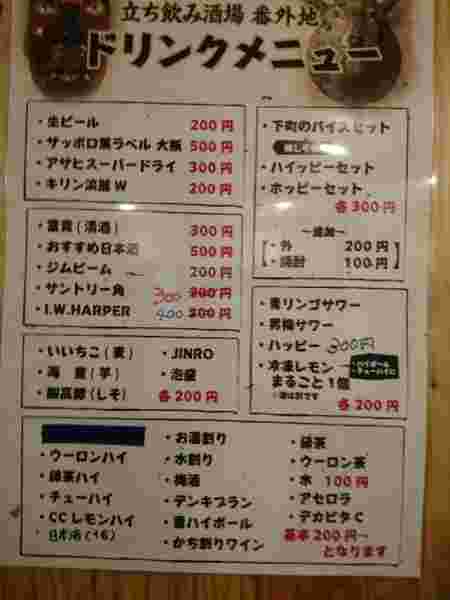 立ち飲み酒場 番外地
ドリンクメニュー
・生ビール 200円
・サッポロ黒ラベル 大瓶 500円
・アサヒスーパードライ 300円
・キリン淡麗W 200円
・富貴(清酒) 300円
・おすすめ日本酒 500円
・ジムビーム 200円
・サントリー角 300 200円
・I.W.HARPER 400 300円
・いいちこ(麦)
・海童(芋)
・鍛高譚(しそ)
・JINRO
・泡盛
各200円
・ウーロンハイ
・緑茶ハイ
・チューハイ
・CCレモンハイ
日本酒(1合)
・お湯割り
・水割り
・梅酒
・デンキブラン
・書ハイボール
・かち割りワイン
・緑茶
・ウーロン茶
・水 100円
・アセロラ
・デカビタC
基本200円~
となります
・下町のバイスセット
・ハイッピーセット
・ホッピーセット
各300円
~追加~
・外 200円
・焼酎 100円
・青リンゴサワー
・男梅サワー
・ハッピー 300円
・冷凍レモン
まるごと1個
・ハイボール
・チューハイに
※酒は別です
各200円